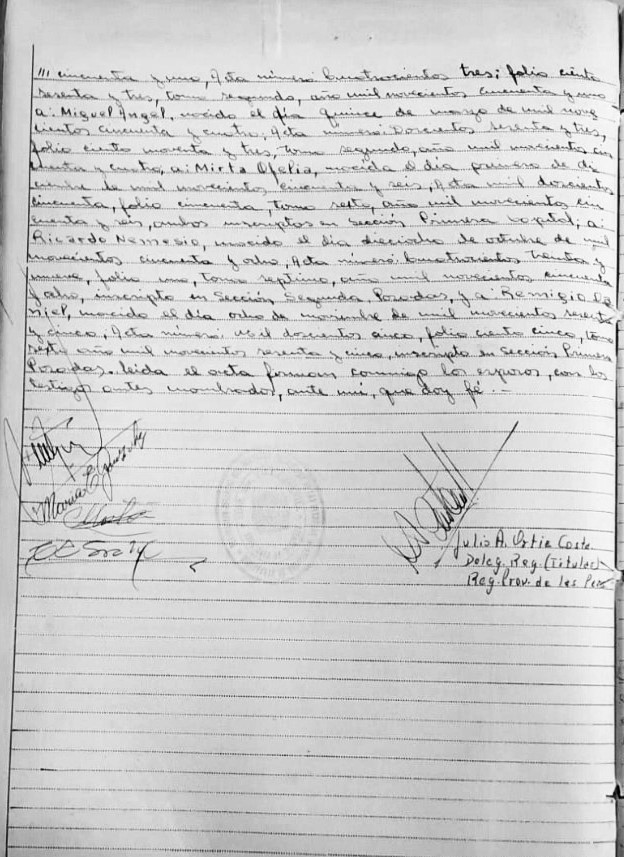 /// cincuenta y uno, Acta número: Cuatrocientos tres; folio ciento
sesenta y tres, tomo segundo, año mil novecientos cincuenta y uno
a: Miguel Angel, nacido el día quince de marzo de mil nove
cientos cincuenta y cuatro; Acta número: Doscientos sesenta y tres,
folio ciento noventa y tres, tomo segundo, año mil novecientos cin
cuenta y cuatro, a: Mirta Ofelia, nacida el día primero de di
ciembre de mil novecientos cincuenta y seis, Acta mil doscientos
cincuenta, folio cincuenta, tomo sexto, año mil novecientos cin
cuenta y seis, ambos inscriptos en Sección Primera Capital, a:
Ricardo Nemesio, nacido el día dieciocho de octubre de mil
novecientos cincuenta y ocho, Acta número: Cuatrocientos treinta y
nueve, folio uno, tomo septimo, año mil novecientos cincuenta
y ocho, inscripto en Sección Segunda Posadas, y a: Remigio Da
niel, nacido el día ocho de noviembre de mil novecientos sesenta
y cinco, Acta número: mil doscientos cinco, folio ciento cinco, tomo
sexto año mil novecientos sesenta y cinco, inscripto en Sección Primera
Posadas. leida el acta forman conmigo los esposos, con los
testigos antes nombrados, ante mí, que doy fé.-
Julio A. Ortiz Coste
Deleg. Reg. (Titular)
Reg. Prov. de las Pers